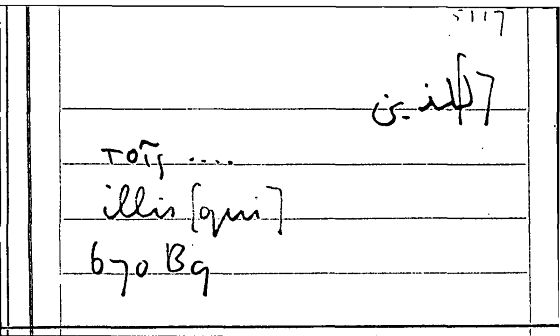 5117
للذين
τοῖς ....
illis [qui]
670 B9